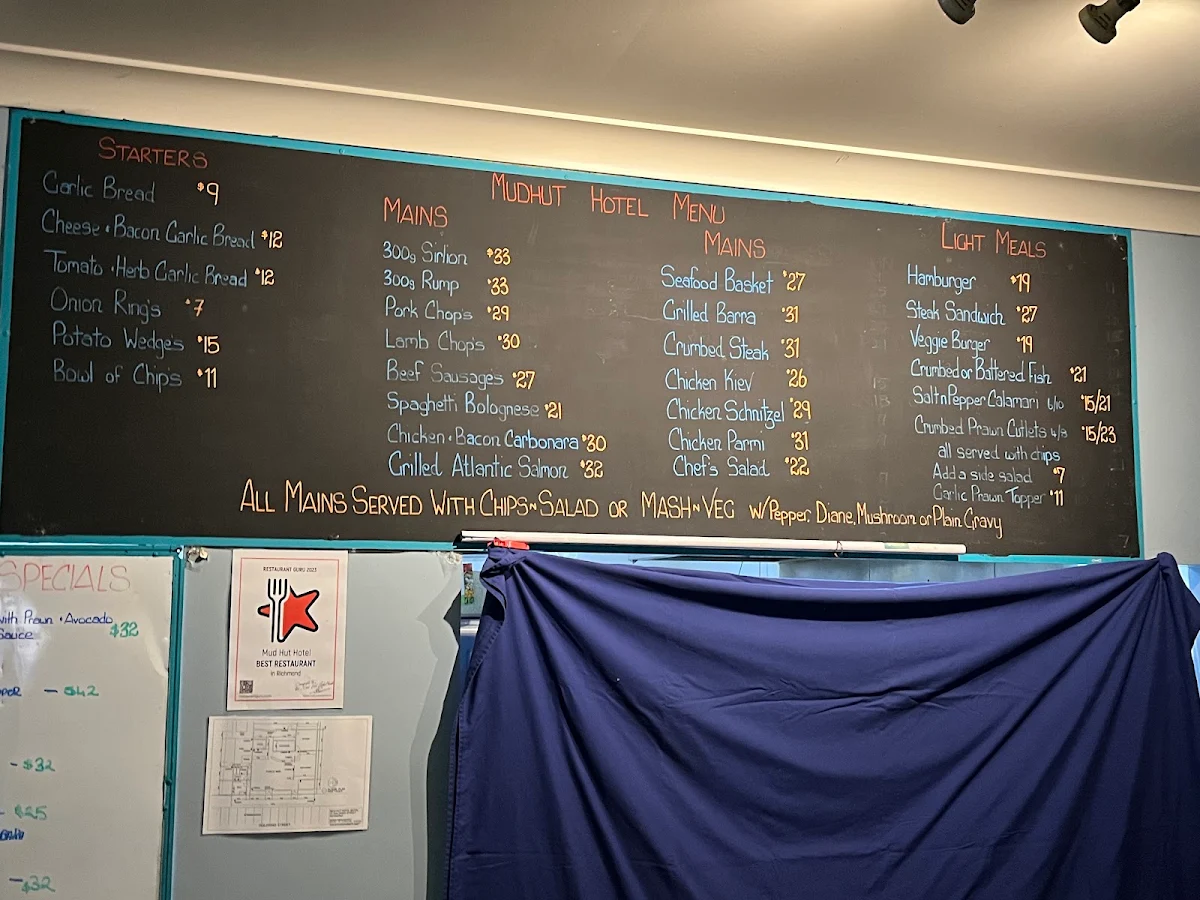 MUDHUT HOTEL MENU
STARTERS
Garlic Bread $9
Cheese • Bacon Garlic Bread $12
Tomato • Herb Garlic Bread $12
Onion Ring's $7
Potato Wedge's $15
Bowl of Chip's $11
MAINS
300g Sirlion $33
300g Rump $33
Pork Chop's $29
Lamb Chop's $30
Beef Sausages $27
Spaghetti Bolognese $21
Chicken • Bacon Carbonara $30
Grilled Atlantic Salmon $32
MAINS
Seafood Basket $27
Grilled Barra $31
Crumbed Steak $31
Chicken Kiev $26
Chicken Schnitzel $29
Chicken Parmi $31
Chef's Salad $22
LIGHT MEALS
Hamburger $19
Steak Sandwich $27
Veggie Burger $19
Crumbed or Battered Fish $21
Salt n Pepper Calamari 6/10 $15/21
Crumbed Prawn Cutlets 4/8 $15/23
all served with chips
Add a side salad $7
Garlic Prawn Topper $11
ALL MAINS SERVED WITH CHIPS~SALAD OR MASH~VEG W/Pepper, Diane, Mushroom or Plain Gravy
SPECIALS
with Prawn • Avocado
Sauce $32
- $42
- $32
- $25
- $32
RESTAURANT GURU 2023
Mud Hut Hotel
BEST RESTAURANT
in Richmond